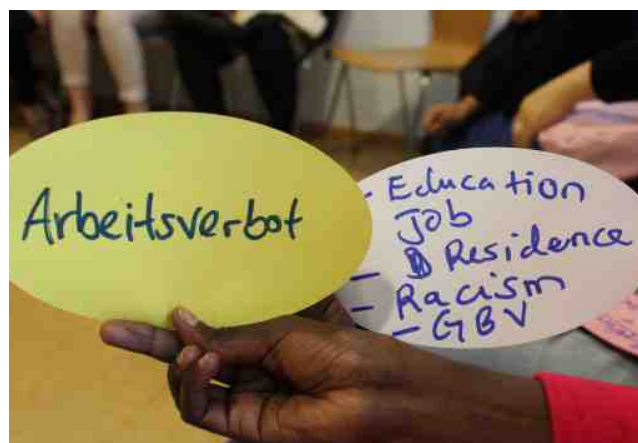 Arbeitsverbot
- Education
Job
- Residence
- Racism
- GBV